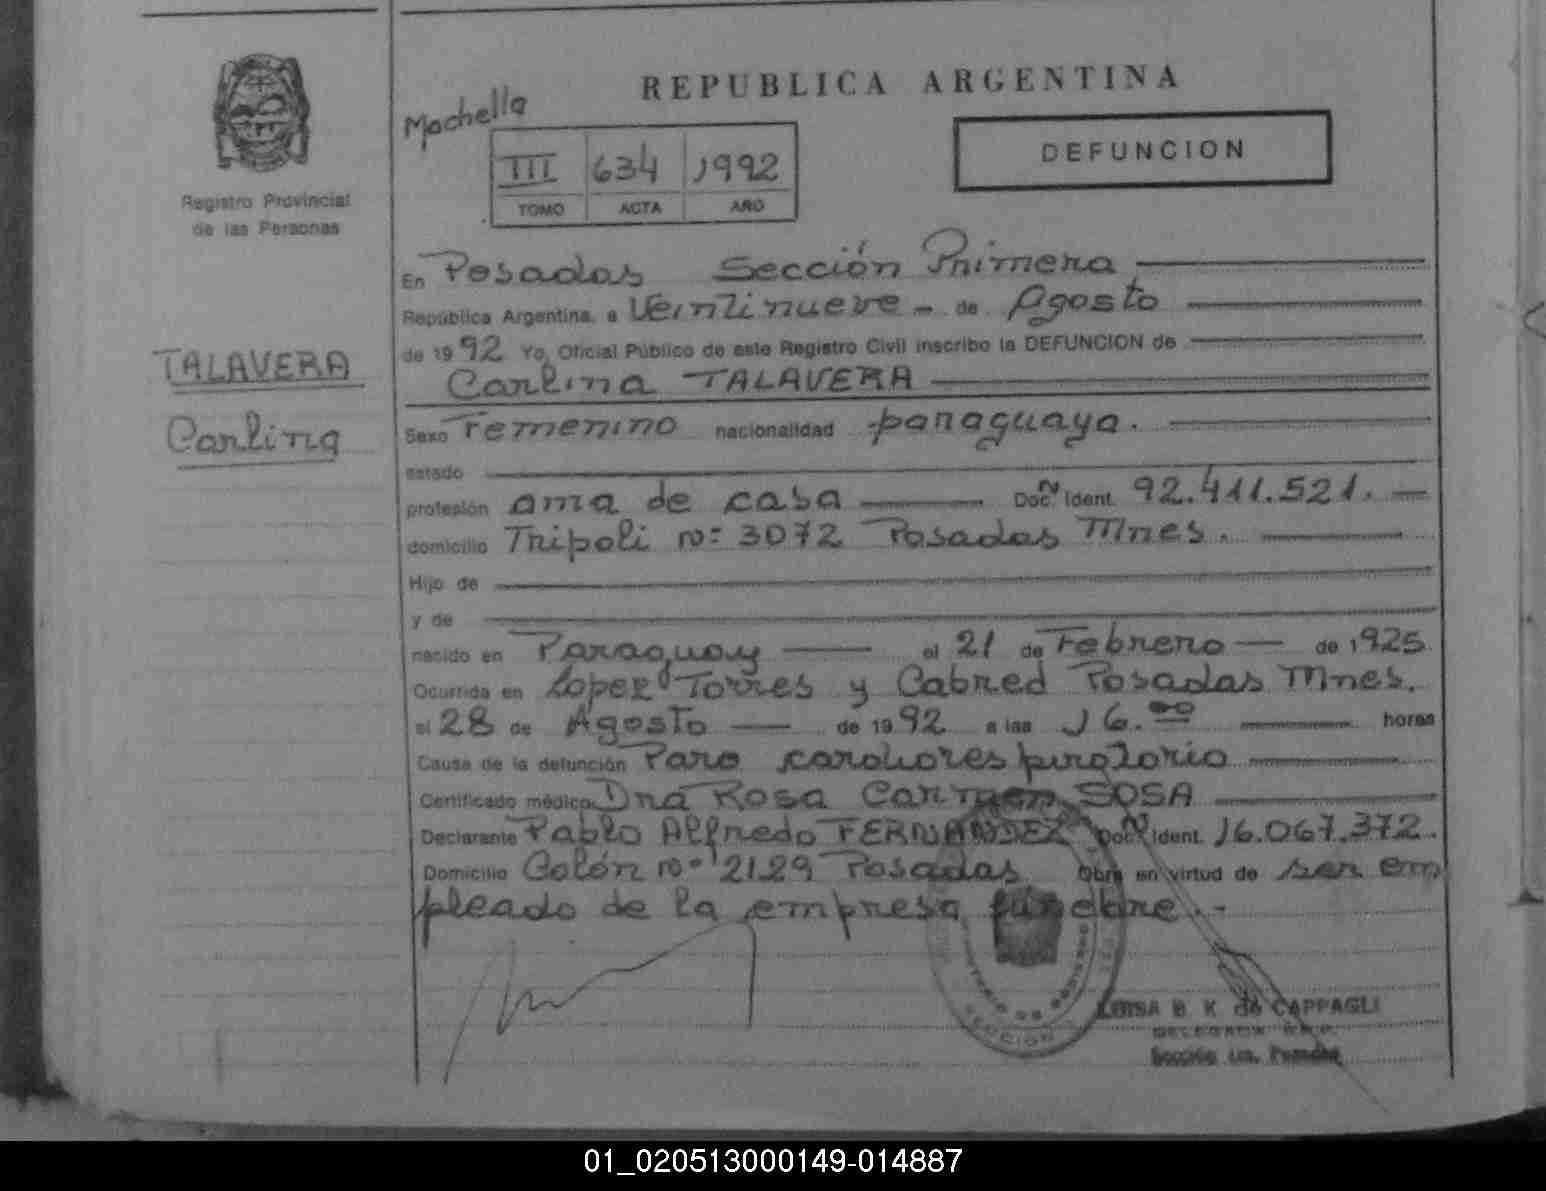 REPUBLICA ARGENTINA
Machella
III 634 1992
TOMO ACTA AÑO
DEFUNCION
Registro Provincial
de las Personas
TALAVERA
Carlina
En Posadas Sección Primera
República Argentina, a Veintinueve de Agosto
de 1992 Yo, Oficial Público de este Registro Civil inscribo la DEFUNCION de
Carlina TALAVERA
Sexo Femenino nacionalidad paraguaya.
estado
profesión ama de casa Doc. N Ident. 92.411.521.
domicilio Tripoli nº 3072 Posadas Mnes.
Hijo de
y de
nacido en Paraguay el 21 de Febrero de 1925
Ocurrida en Lopez Torres y Cabred Posadas Mnes.
el 28 de Agosto de 1992 a las 16.00 horas
Causa de la defunción Paro cardiorespiratorio
Certificado médico Dra Rosa Carmen SOSA
Declarante Pablo Alfredo FERNANDEZ Doc. N Ident. 16.067.372.
Domicilio Colón nº 2129 Posadas Obra en virtud de ser em
pleado de la empresa fúnebre.-
MINISTERIO DE GOBIERNO
SECCION 1
LUISA B. K. de CAPPAGLI
DELEGADA R.P.P.
Sección 1ra. Posadas
01_020513000149-014887